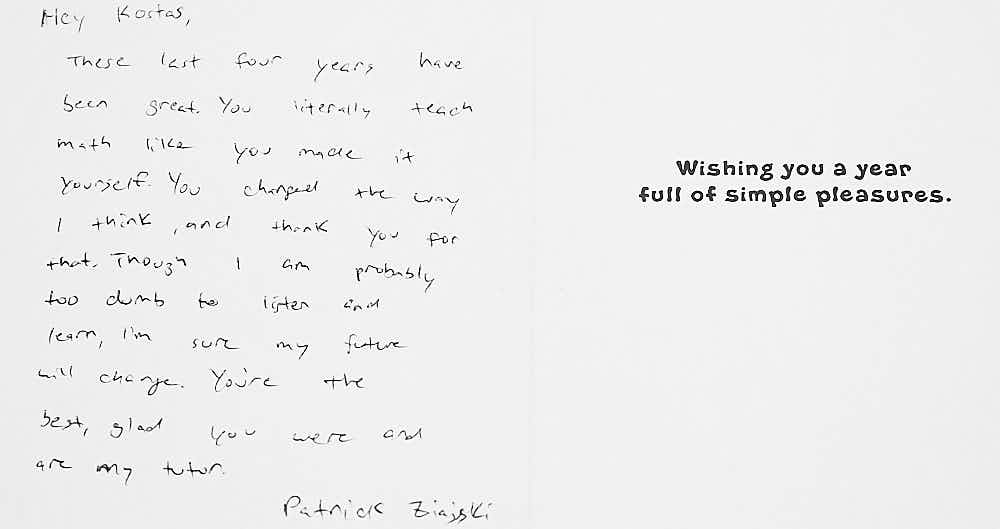 Hey Kostas,
These last four years have
been great. You literally teach
math like you made it
yourself. You changed the way
I think, and thank you for
that. Though I am probably
too dumb to listen and
learn, I'm sure my future
will change. You're the
best, glad you were and
are my tutor.
Patrick
Wishing you a year
full of simple pleasures.